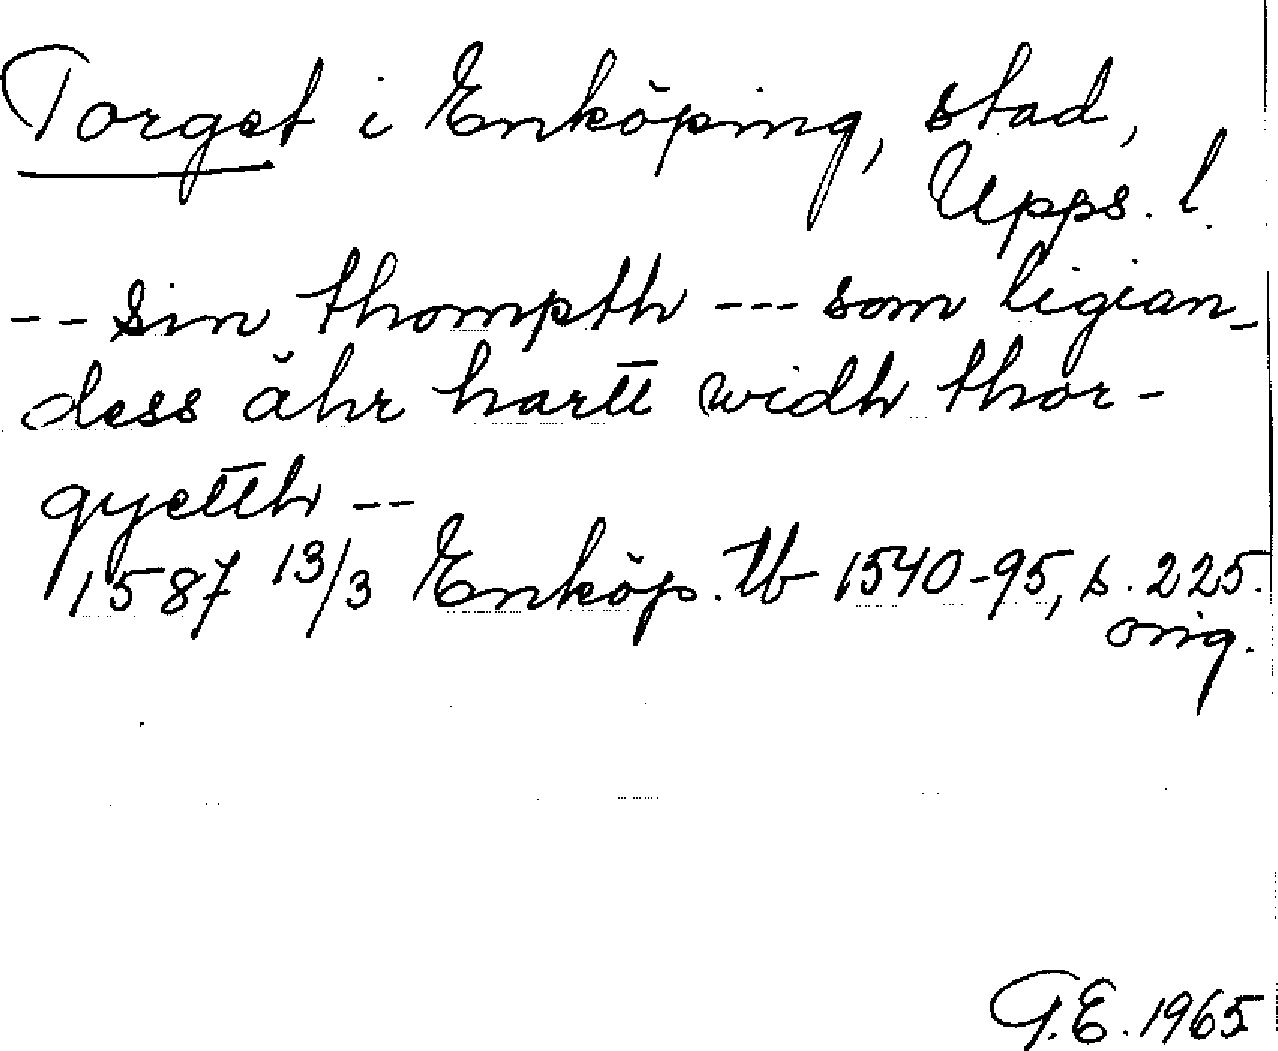 Torget i Enköping, stad,
Upps. l.
-- sin thompth --- som ligian-
dess ähr hartt widh thor-
gyettth --
1587 13/3 Enköp. tb 1540-95, s. 225.
orig.
G.E. 1965